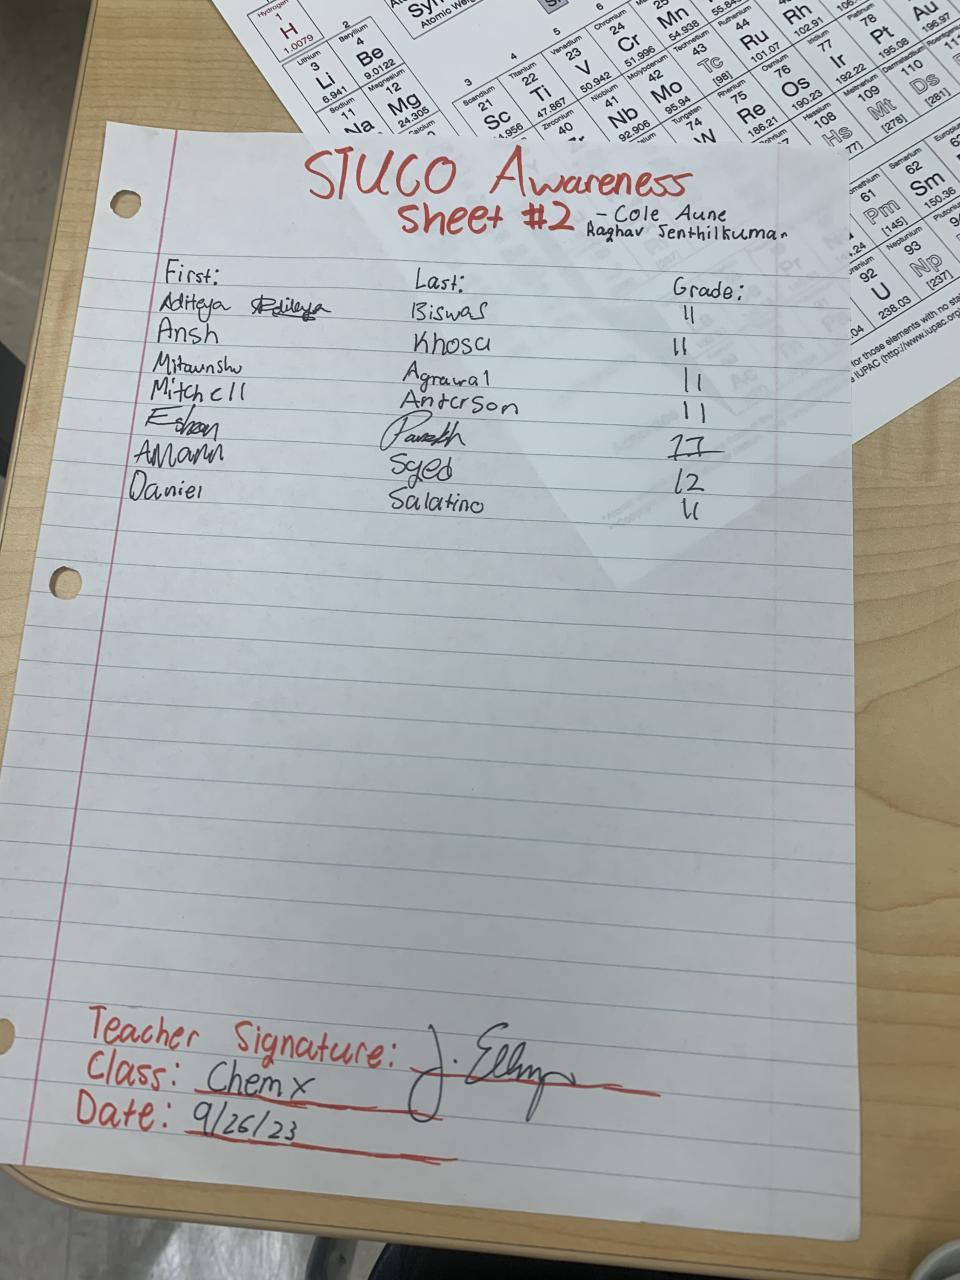 Hydrogen
1
H
1.0079
2
Lithium
3
Li
6.941
Beryllium
4
Be
9.0122
Sodium
11
Na
Magnesium
12
Mg
24.305
3
Scandium
21
Sc
4
Titanium
22
Ti
47.867
5
Vanadium
23
V
50.942
6
Chromium
24
Cr
51.996
Mn
54.938
Zirconium
40
Niobium
41
Nb
92.906
Molybdenum
42
Mo
95.94
Technetium
43
Tc
[98]
Ruthenium
44
Ru
101.07
Rh
102.91
Tungsten
74
W
Rhenium
75
Re
186.21
Osmium
76
Os
190.23
Iridium
77
Ir
192.22
Platinum
78
Pt
195.08
Au
196.97
Hassium
108
Hs
Meitnerium
109
Mt
[278]
Darmstadtium
110
Ds
[281]
61
Pm
[145]
Samarium
62
Sm
150.36
92
U
238.03
Neptunium
93
Np
[237]
for those elements with no
IUPAC (http://www.iupac.org
STUCO Awareness
Sheet #2 - Cole Aune
Raghav Senthilkumar
First: Last: Grade:
Aditeya Biswas 11
Ansh Khosa 11
Mitaunshu Agrawal 11
Mitchell Anterson 11
Eshan Parekh 11
AMann Syed 12
Daniel Salatino 11
Teacher Signature: J.
Class: Chem X
Date: 9/26/23